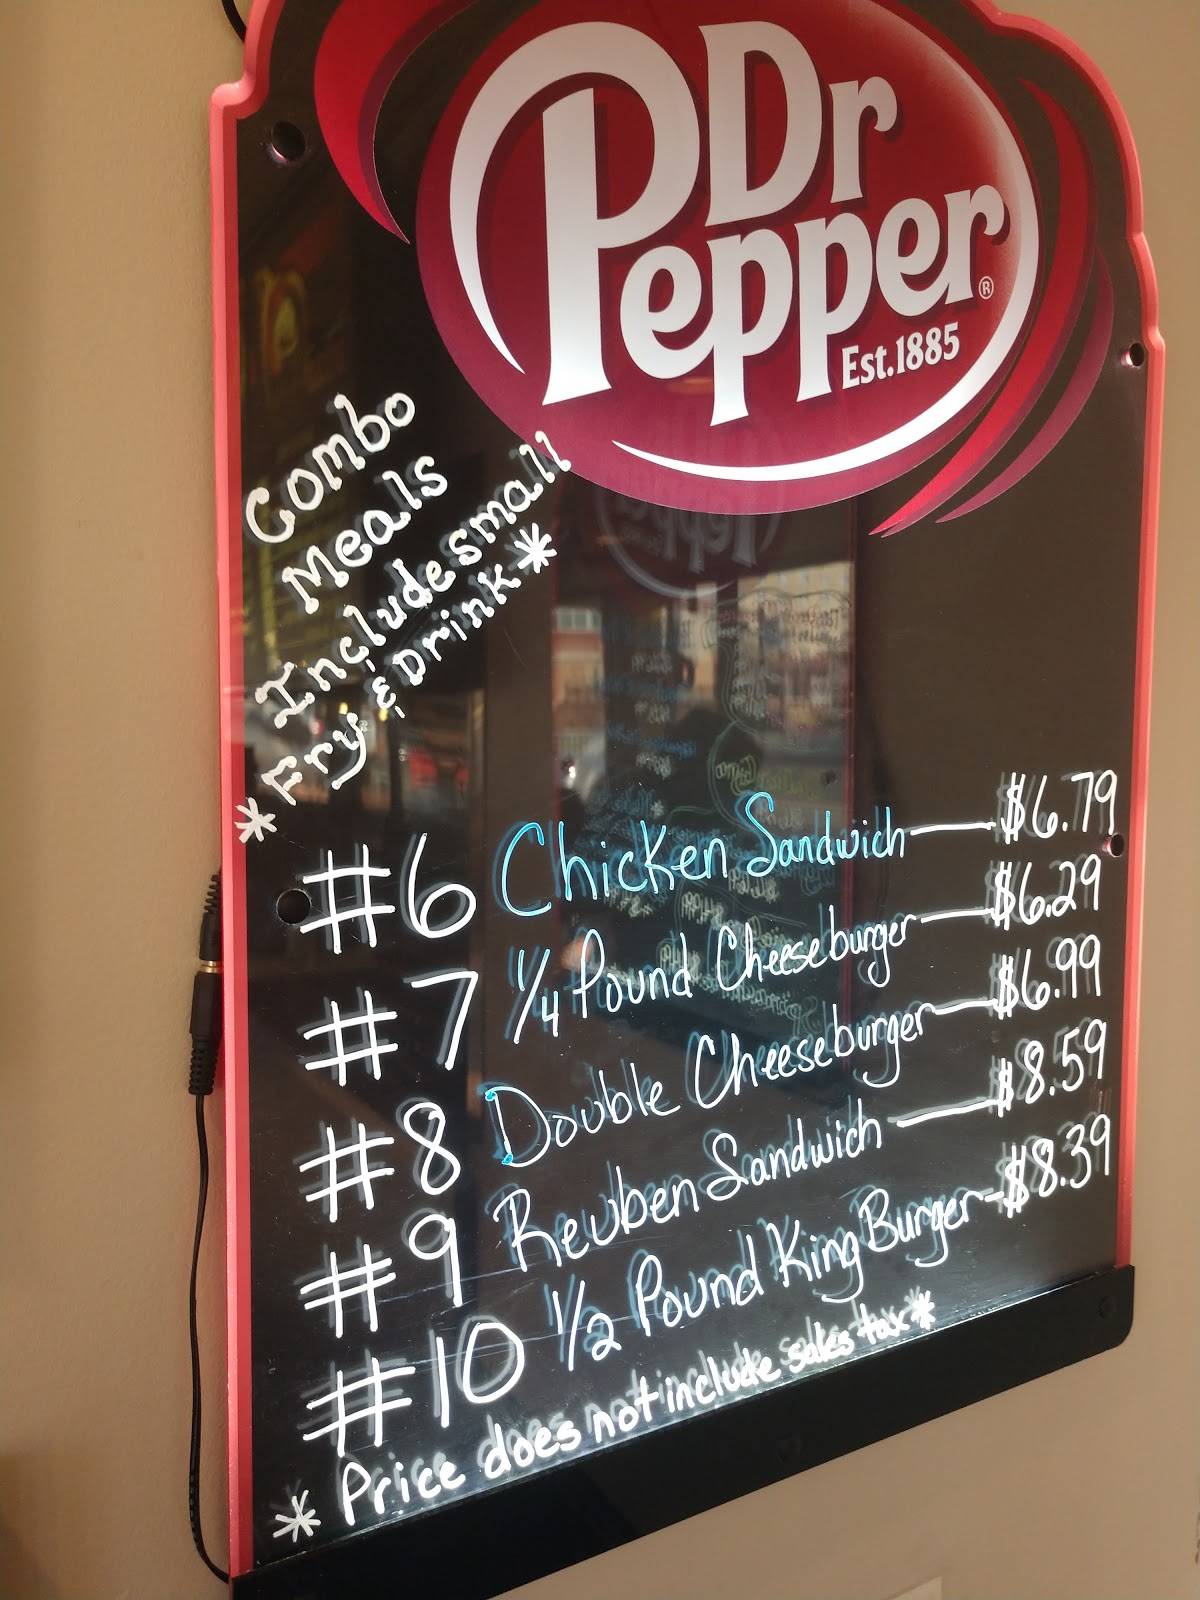 Dr
Pepper®
Est.1885
Combo
Meals
Include small
*Fry & Drink*
#6 Chicken Sandwich — $6.79
#7 1/4 Pound Cheeseburger — $6.29
#8 Double Cheeseburger — $6.99
#9 Reuben Sandwich — $8.59
#10 1/2 Pound King Burger - $8.39
* Price does not include sales tax*